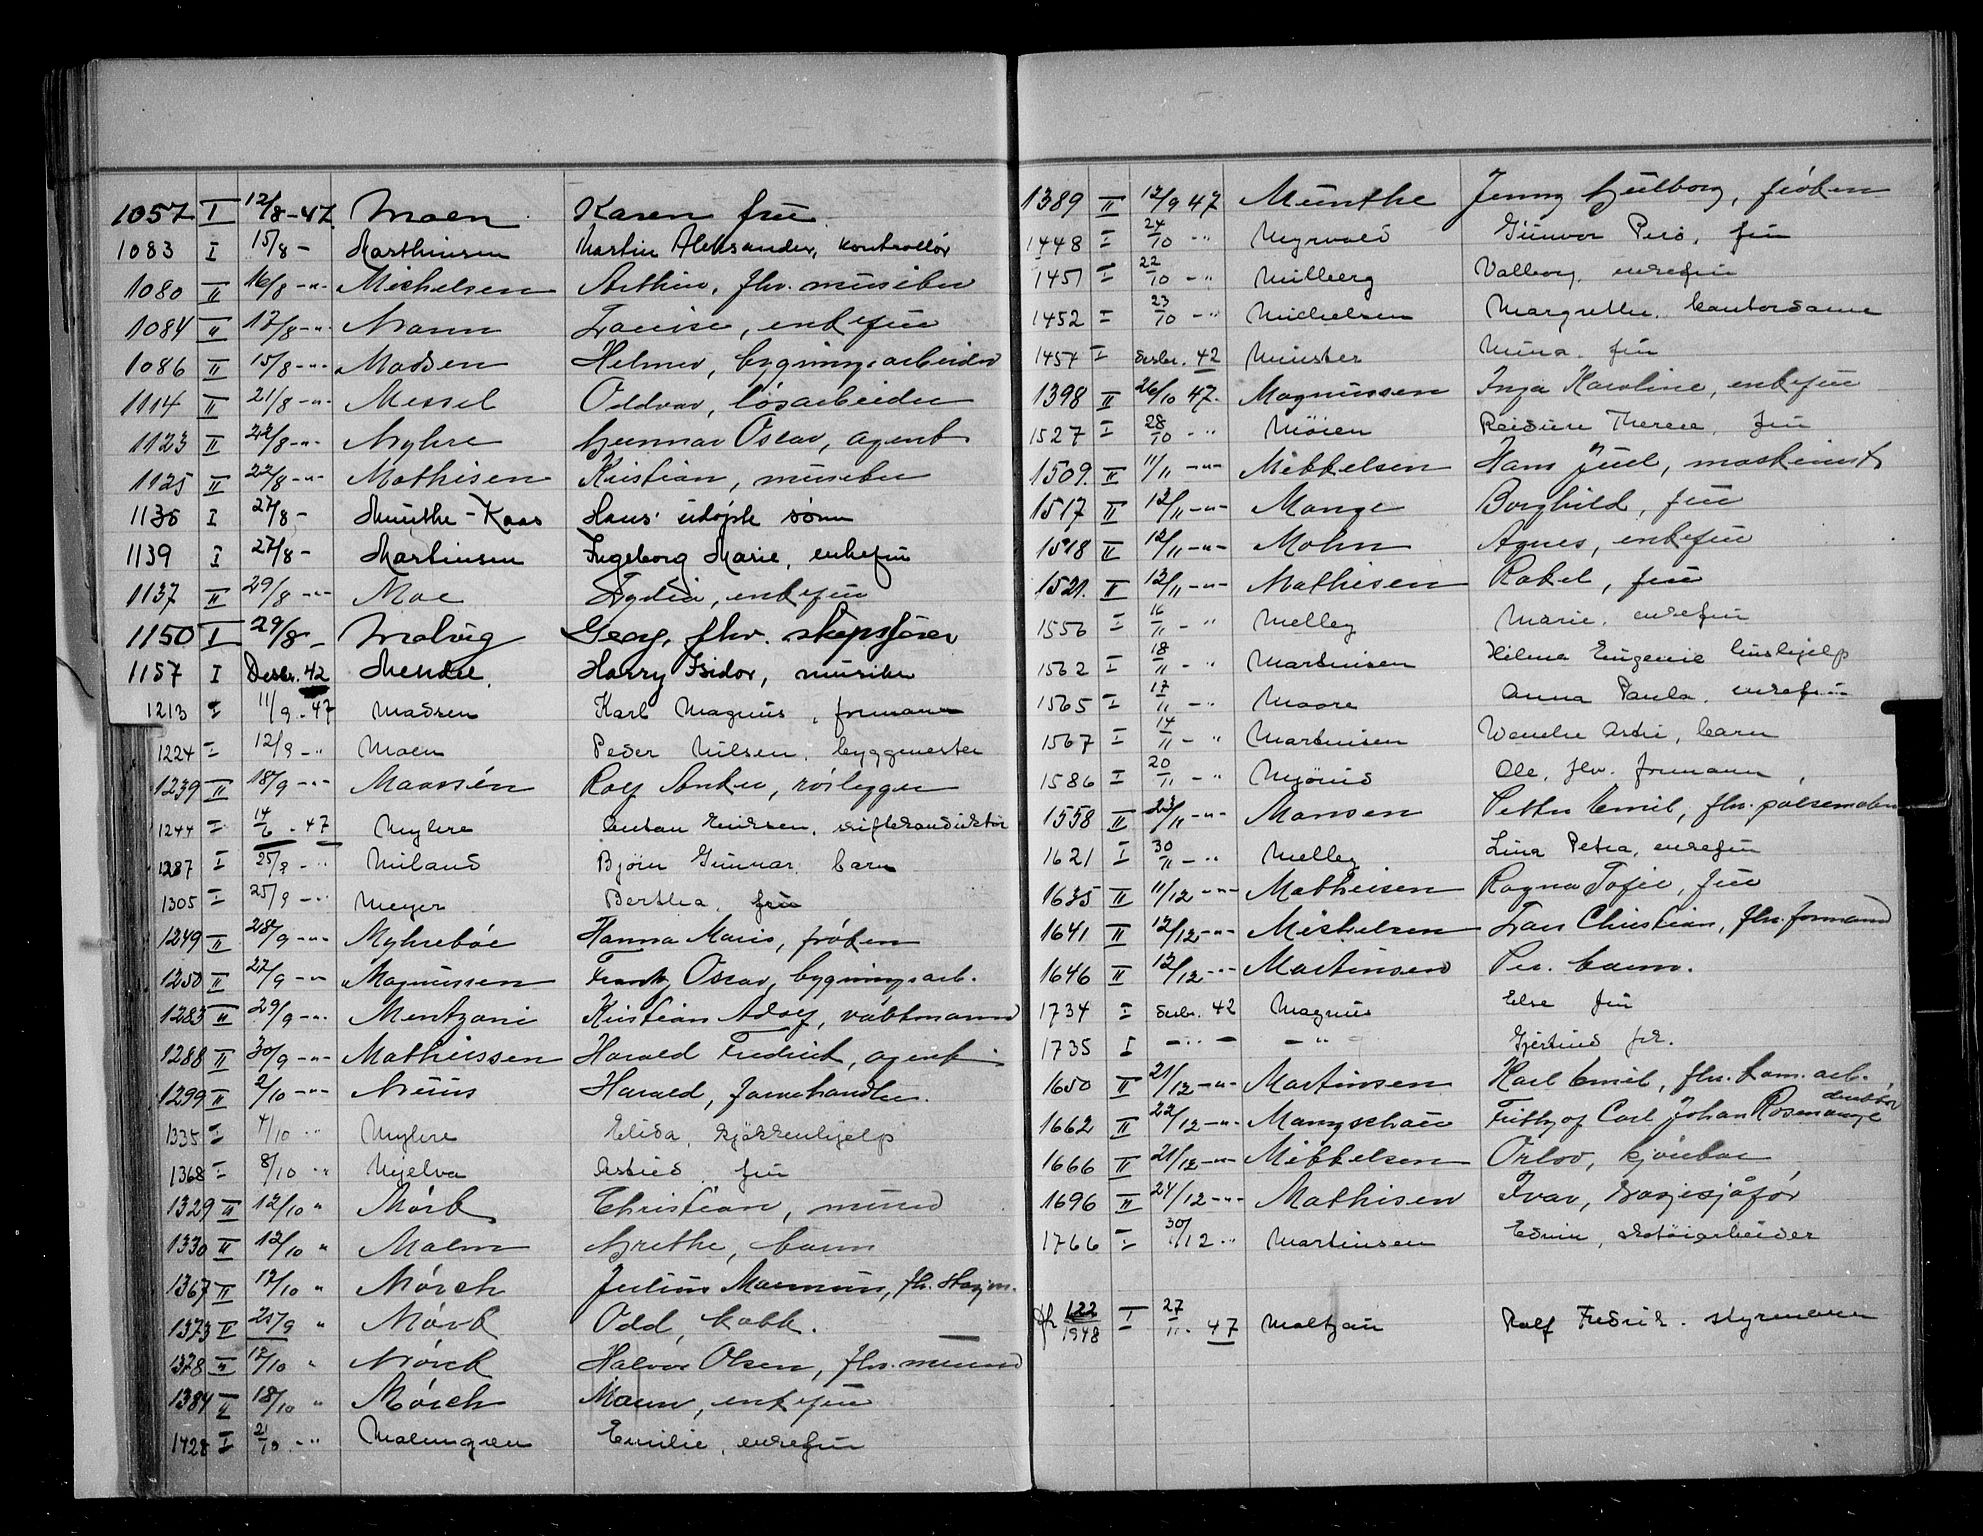 1057 I 12/8-47. Moen Karen fru
1083 I 15/8 - Marthinsen Martin Aleksander, kontrollør
1080 II 16/8 -"- Michelsen Arthur, fhv. musiker
1084 II 17/8 -"- Mann Louise, enkefru
1086 II 15/8 -"- Madsen Helmer, bygningsarbeider
1114 II 21/8 -"- Messel Oddvar, løsarbeider
1123 II 22/8 -"- Myhre Gunnar Oscar, agent
1125 II 22/8 -"- Mathisen Kristian, musiker
1136 I 27/8 - Munthe-Kaas Hans' udøpte sønn
1139 I 27/8 - Martinsen Ingeborg Marie, enkefru
1137 II 29/8 -"- Moe Lydia, enkefru
1150 I 29/8 - Malvig Georg, fhv. skipsfører
1157 I Desbr. 42 Mendel, Harry Isidor, musiker
1213 I 11/9 - 47 Madsen Karl Magnus, formann
1224 I 12/9 - " Moen Peder Nilsen, byggmester
1239 II 18/9 -"- Maarsén Rolf Anker, rørlegger
1244 I 14/6 - 47 Myhre Anton Eriksen,
1287 I 25/9 - " Miland Bjørn Gunnar, barn
1305 I 25/9 - " Meyer Bertha, fru
1249 II 28/9 -"- Myhrebøe Hanna Marie, frøken
1250 II 27/9 -"- Magnussen Frank Oscar, bygningsarb.
1283 II 29/9 -"- Mentzoni Kristian Adolf, vaktmann
1288 II 30/9 -"- Mathiessen Harald Fredrik, agent
1299 II 2/10 -"- Harald, Jernehandler.
1335 I 4/10 " Myhre Elida, kjøkkenhjelp
1368 I 8/10 " Mjelva Astrid fru
1329 II 12/10 " Mørk Christian, murer
1330 II 12/10 " Malm Grethe, barn
1367 II 17/10 " Mørch Julius Marenius, fh.
1373 II 25/9 " Mørk Odd, kokk.
1378 II 17/10 " Mørck Halvor Olsen, fhv. murer
1384 II 18/10 " Mørch enkefru
1428 I 21/10 -" Malmgren Emilie, enkefru
1389 II 12/9 47 Munthe Jenny Gulborg, frøken
1448 I 24/10 - " Myrvold Gunvor Perd, fru
1451 I 22/10 - " Milberg Valborg, enkefru
1452 I 23/10 - " Michelsen Margrethe. kontordame
1457 I Desbr. 42 Münster Mina. fru
1398 II 26/10 47. Magnussen Inga Karoline, enkefru
1527 I 28/10 - " Moien Reidun Therese, fru
1509. II 11/11 -"- Mikkelsen Hans Juel, maskinist
1517 II 12/11 -"- Mange Borghild, fru
1518 II 12/11 -"- Mohn Agnes, enkefru
1521. II 12/11 -"- Mathisen Rakel, fru
1556 I 16/11 - " Melley Marie, enkefru
1562 I 18/11 - " Martinisen Hilma Eugenie hushjelp
1565 I 17/11 - " Moore Anna Paula, enkefru
1567 I 14/11 - " Martinisen Wenche Astri, barn
1586 I 20/11 - " Mjønes Ole, fhv. formann,
1558 II 23/11 -"- Monsen Petter Emil, fhv. pølsemaker
1621 I 30/11 - " Melley Lina Petra, enkefru
1635 II 11/12 -"- Mathiesen Ragna Sofie, fru
1641 II 12/12 -"- Mikkelsen Lars Christian, fhv. formand
1646 II 12/12 -"- Martinsen Per. barn.
1734 I Desbr. 42 Magnus Else fru
1735 I -"- -"- Gjertrud frk.
1650 II 21/12 -"- Martinsen Karl Emil, fhv. kom. arb.
1662 II 22/12 -"- Mangschau Fritjof Carl Johan Rosenange direktør
1666 II 21/12 -"- Mikkelsen Orlov,
1696 II 24/12 -"- Mathisen Ivar,
1766 I 30/12 " Martinsen Edvin, skotøiarbeider
Jfr 122/1948 I 27/11. 47 Maltzau Rolf Fredrik. styrmann